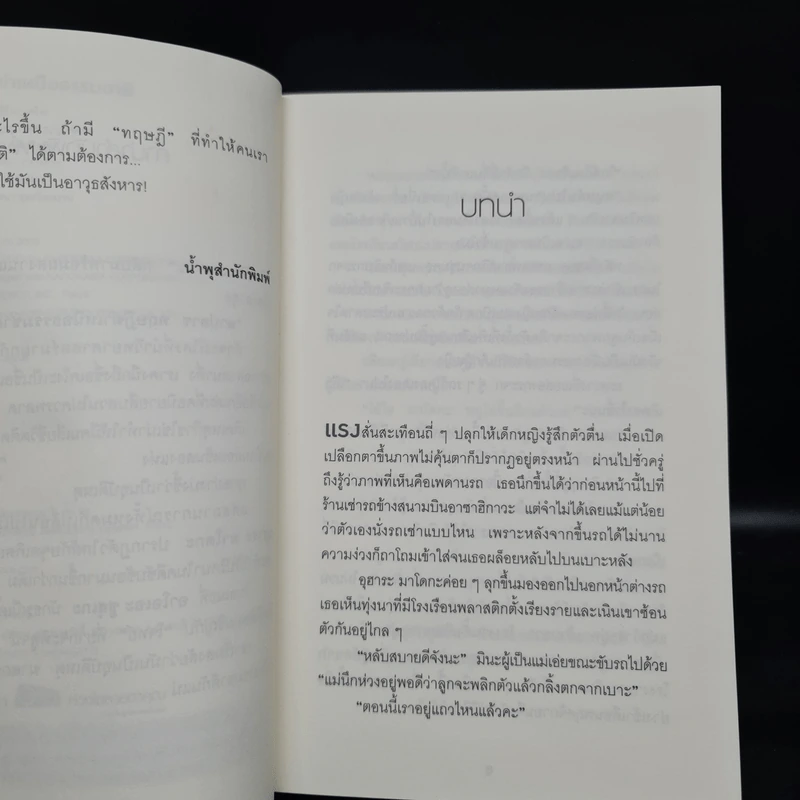 ะไรขึ้น ถ้ามี “ทฤษฎี” ที่ทำให้คนเรา
ติ” ได้ตามต้องการ...
ใช้มันเป็นอาวุธสังหาร!
น้ำพุสำนักพิมพ์
บทนำ
แรงสั่นสะเทือนถี่ ๆ ปลุกให้เด็กหญิงรู้สึกตัวตื่น เมื่อเปิด
เปลือกตาขึ้นภาพไม่คุ้นตาก็ปรากฏอยู่ตรงหน้า ผ่านไปชั่วครู่
ถึงรู้ว่าภาพที่เห็นคือเพดานรถ เธอนึกขึ้นได้ว่าก่อนหน้านี้ไปที่
ร้านเช่ารถข้างสนามบินอาซาฮิกาวะ แต่จำไม่ได้เลยแม้แต่น้อย
ว่าตัวเองนั่งรถเช่าแบบไหน เพราะหลังจากขึ้นรถได้ไม่นาน
ความง่วงก็ถาโถมเข้าใส่จนเธอผล็อยหลับไปบนเบาะหลัง
อุฮาระ มาโดกะค่อย ๆ ลุกขึ้นมองออกไปนอกหน้าต่างรถ
เธอเห็นทุ่งนาที่มีโรงเรือนพลาสติกตั้งเรียงรายและเนินเขาซ้อน
ตัวกันอยู่ไกล ๆ
“หลับสบายดีจังนะ” มินะผู้เป็นแม่เอ่ยขณะขับรถไปด้วย
“แม่นึกห่วงอยู่พอดีว่าลูกจะพลิกตัวแล้วกลิ้งตกจากเบาะ”
“ตอนนี้เราอยู่แถวไหนแล้วคะ”